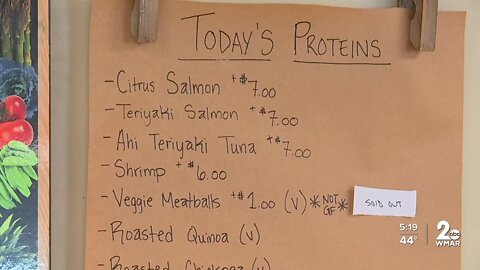 TODAY'S PROTEINS
- CITRUS SALMON +$7.00
- TERIYAKI SALMON +$7.00
- AHI TERIYAKI TUNA +$7.00
- SHRIMP +$6.00
- VEGGIE MEATBALLS +$1.00 (V) *NOT GF* SOLD OUT
- ROASTED QUINOA (V)
- ROASTED CHICKPEA (V)
5:19
44°
2 abc
WMAR